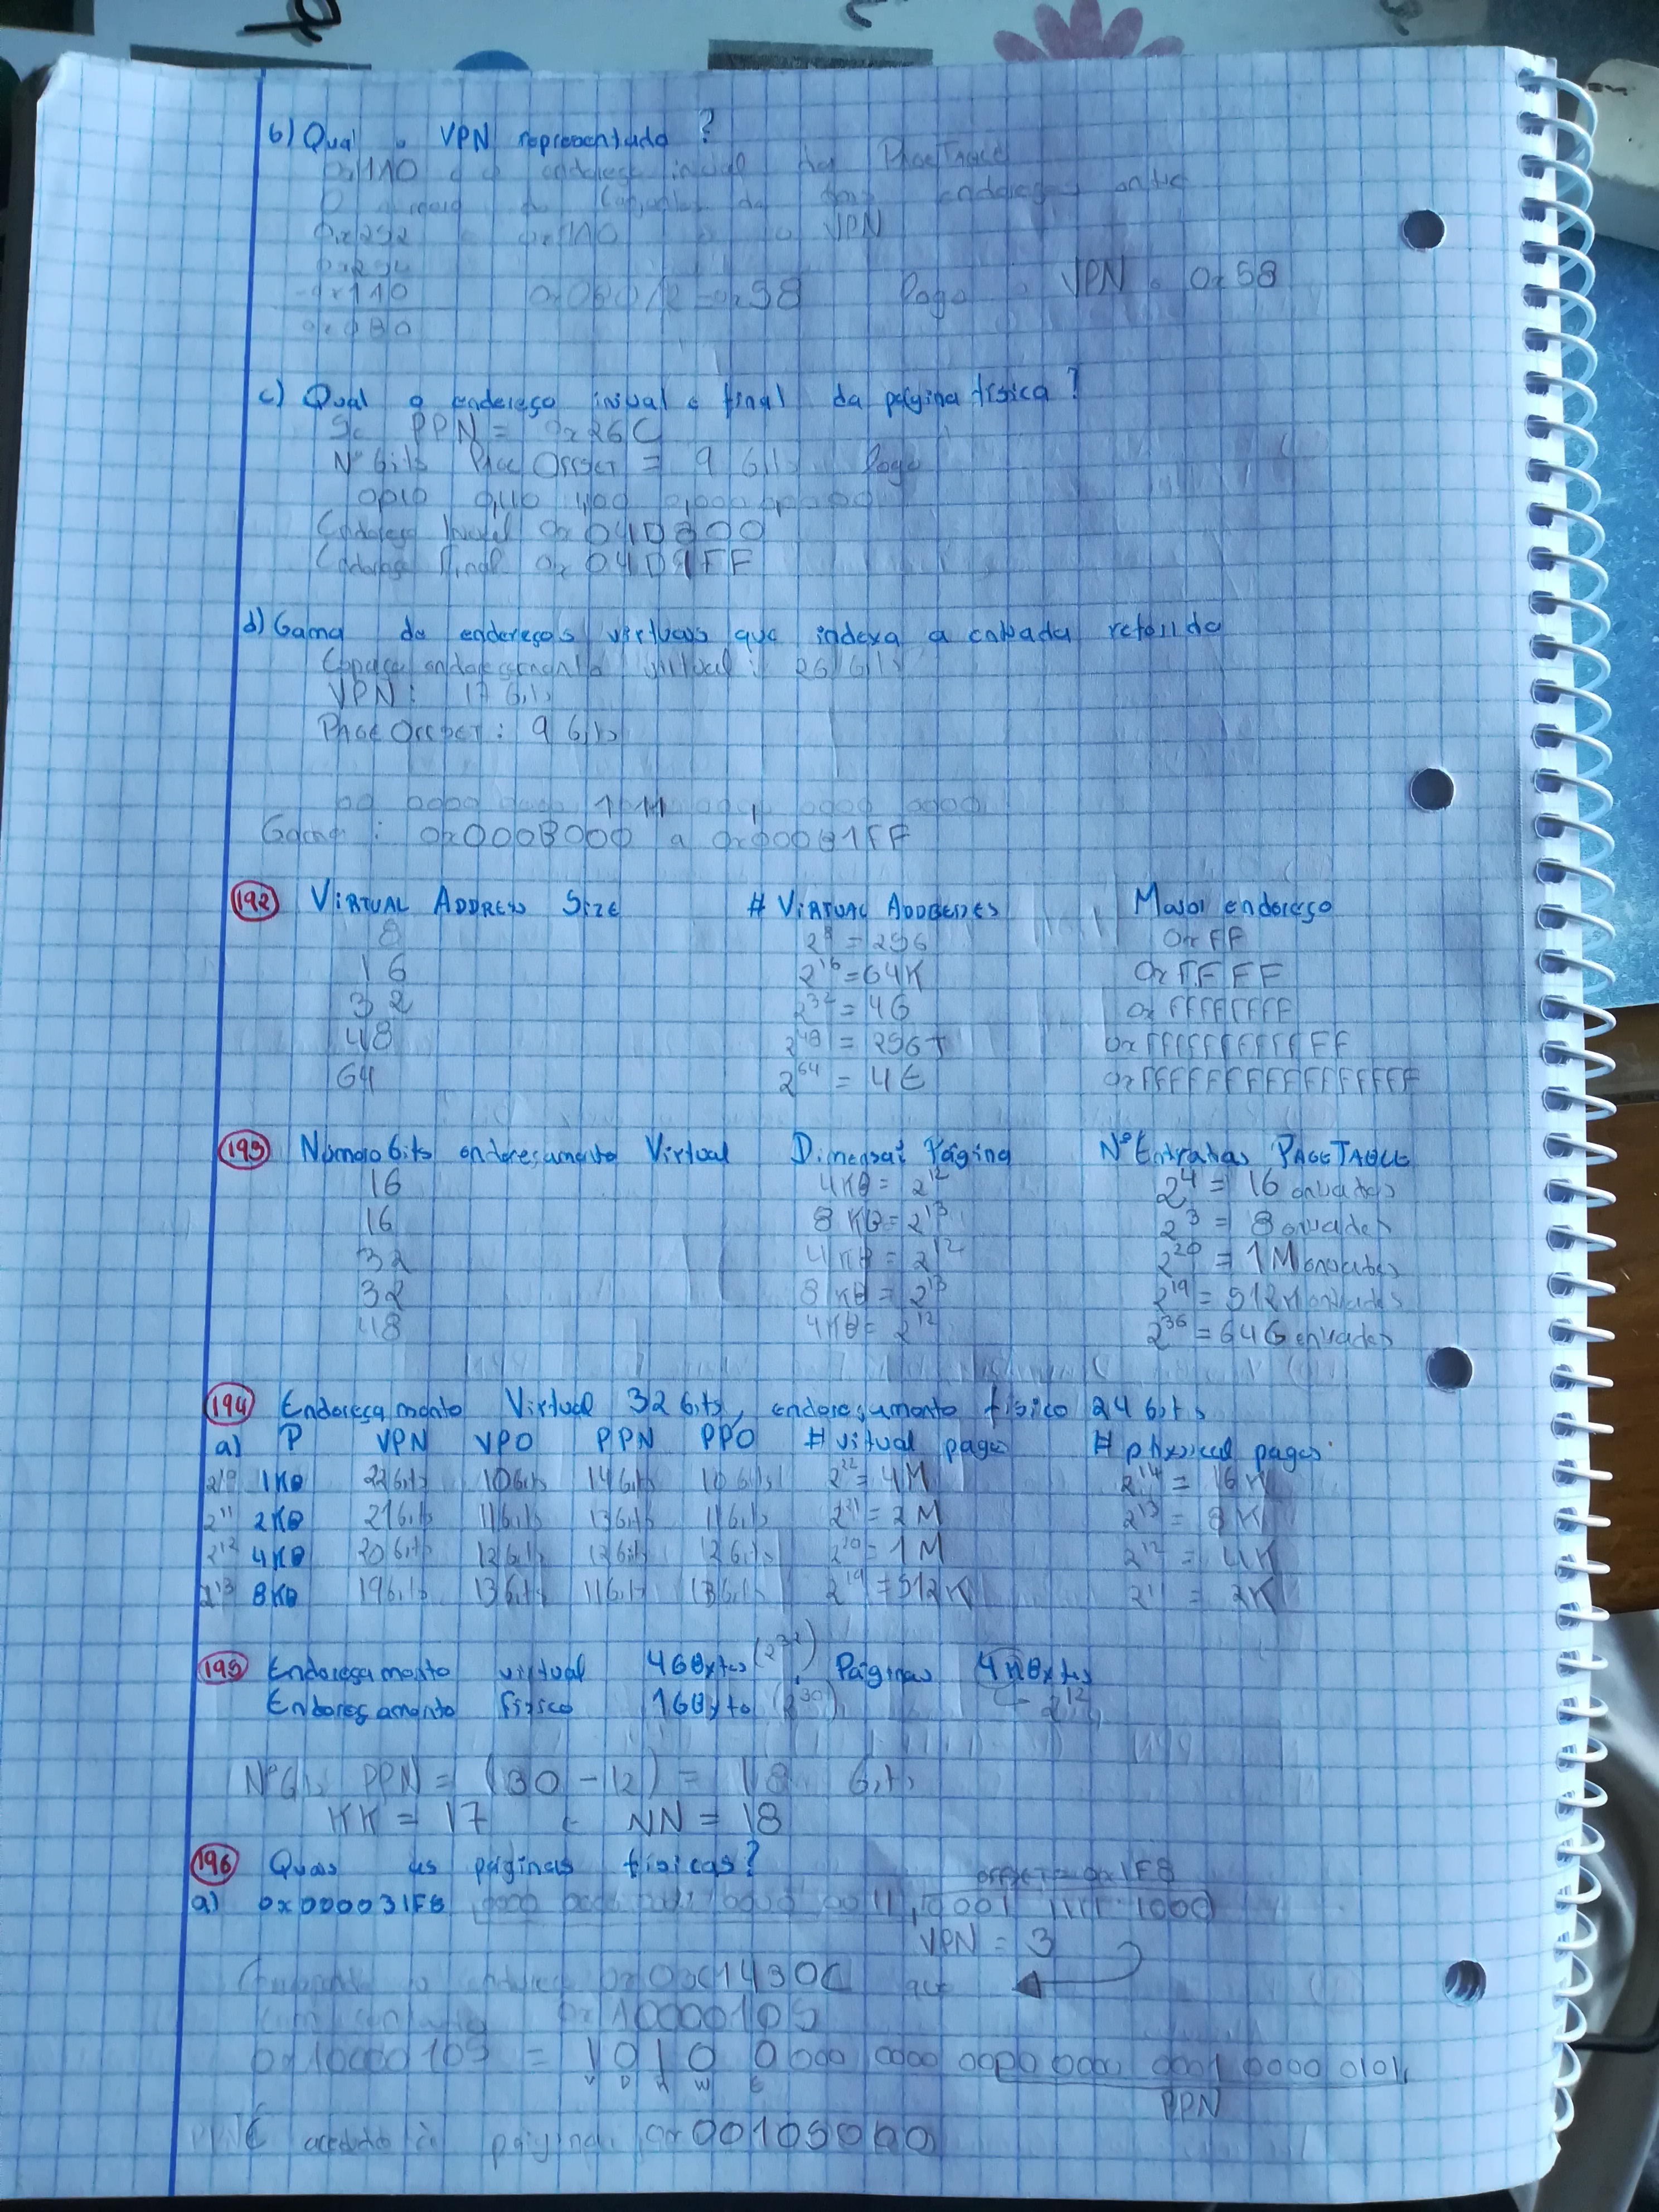 b) Qual o VPN representado?
0x110 é o endereço inicial da PAGETABLE
endereços entre
0x110 VPN
0x110 Logo VPN 0x58
c) Qual o endereço inicial e final da página física?
Se PPN = 0x26C
Nº bits PAGE OFFSET = 9 bits Logo
Endereço Inicial 0x04D800
Endereço Final 0x04D9FF
d) Gama de endereços virtuais que indexa a entrada referida
Espaço endereçamento virtual: 26 bits
VPN: 17 bits
PAGE OFFSET: 9 bits
Gama: 0x000B000 a 0x000B1FF
192 VIRTUAL ADDRESS SIZE # VIRTUAL ADDRESSES Maior endereço
8 2^8 = 256 0xFF
16 2^16 = 64K 0xFFFF
32 2^32 = 4G 0xFFFFFFFF
48 2^48 = 256T 0xFFFFFFFFFFFF
64 2^64 = 4E 0xFFFFFFFFFFFFFFFF
193 Número bits endereçamento Virtual Dimensão Página Nº Entradas PAGETABLE
16 4KB = 2^12 2^4 = 16 entradas
16 8KB = 2^13 2^3 = 8 entradas
32 4KB = 2^12 2^20 = 1M entradas
32 8KB = 2^13 2^19 = 512K entradas
48 4KB = 2^12 2^36 = 64G entradas
194 Endereçamento Virtual 32 bits, endereçamento físico 24 bits
a) P VPN VPO PPN PPO # virtual pages # physical pages
2^10 1KB 22bits 10bits 14bits 10bits 2^22 = 4M 2^14 = 16K
2^11 2KB 21bits 11bits 13bits 11bits 2^21 = 2M 2^13 = 8K
2^12 4KB 20bits 12bits 12bits 12bits 2^20 = 1M 2^12 = 4K
2^13 8KB 19bits 13bits 11bits 13bits 2^19 = 512K 2^11 = 2K
195 Endereçamento virtual 4GBytes (2^32), Páginas 4KBytes
Endereçamento físico 1GByte (2^30), 2^12
Nº bits PPN = (30 - 12) = 18 bits
KK = 17 e NN = 18
196 Quais as páginas físicas? OFFSET = 0x1F8
a) 0x000031F8 0011, 0001 1111 1000
VPN = 3
endereço 0x03C1430C que
0x10000105
0x10000105 = 1010 0000 0000 0000 0000 0001 0000 0101
V D R W E PPN
É acedido à página 0x00105000